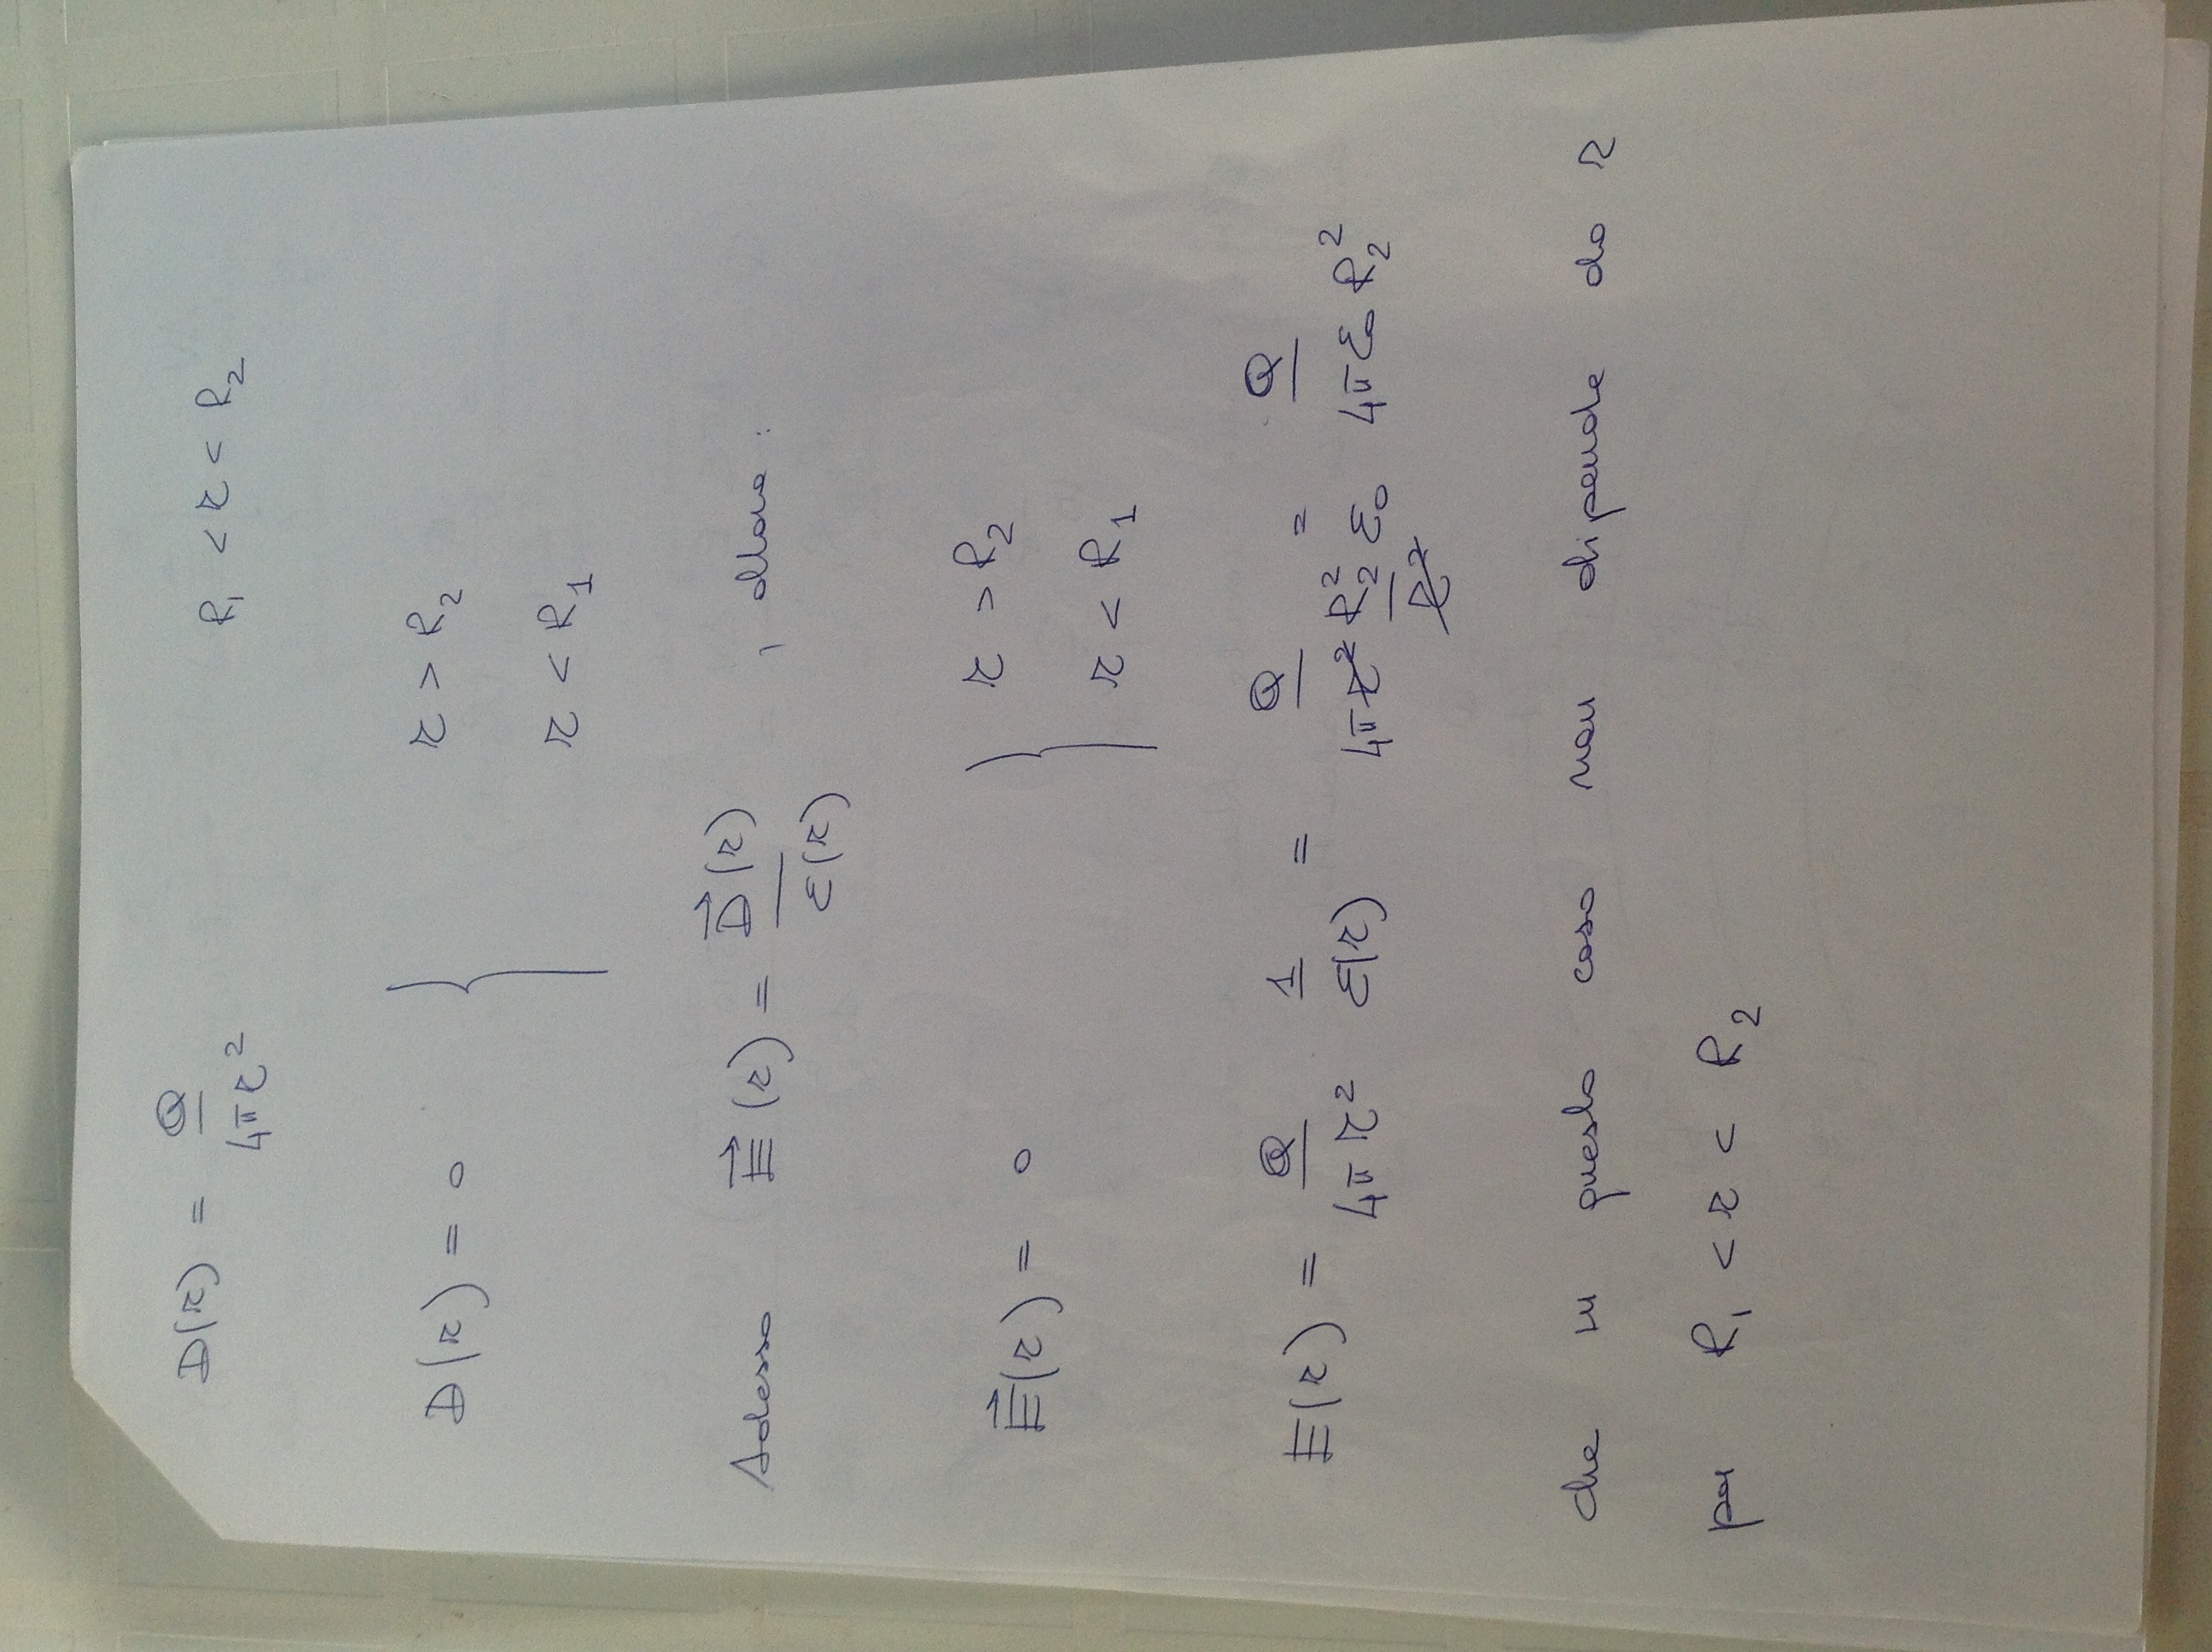 D(r) = Q / 4π r² R₁ < r < R₂
D(r) = 0 { r > R₂
r < R₁
Adesso E⃗(r) = D⃗(r) / ε(r) , allora :
E⃗(r) = 0 { r > R₂
r < R₁
E(r) = Q / 4π r² 1 / ε(r) = Q / 4π r² R₂² / r² ε₀ = Q / 4π ε₀ R₂²
che in questo caso non dipende da r
per R₁ < r < R₂